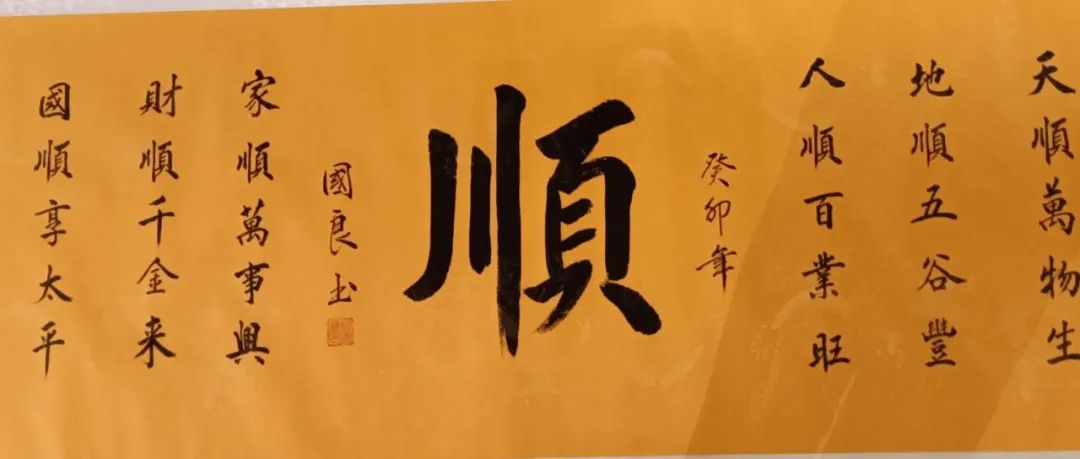 天順萬物生
地順五谷豐
人順百業旺
癸卯年
順
國良书
家順萬事興
財順千金来
國順享太平